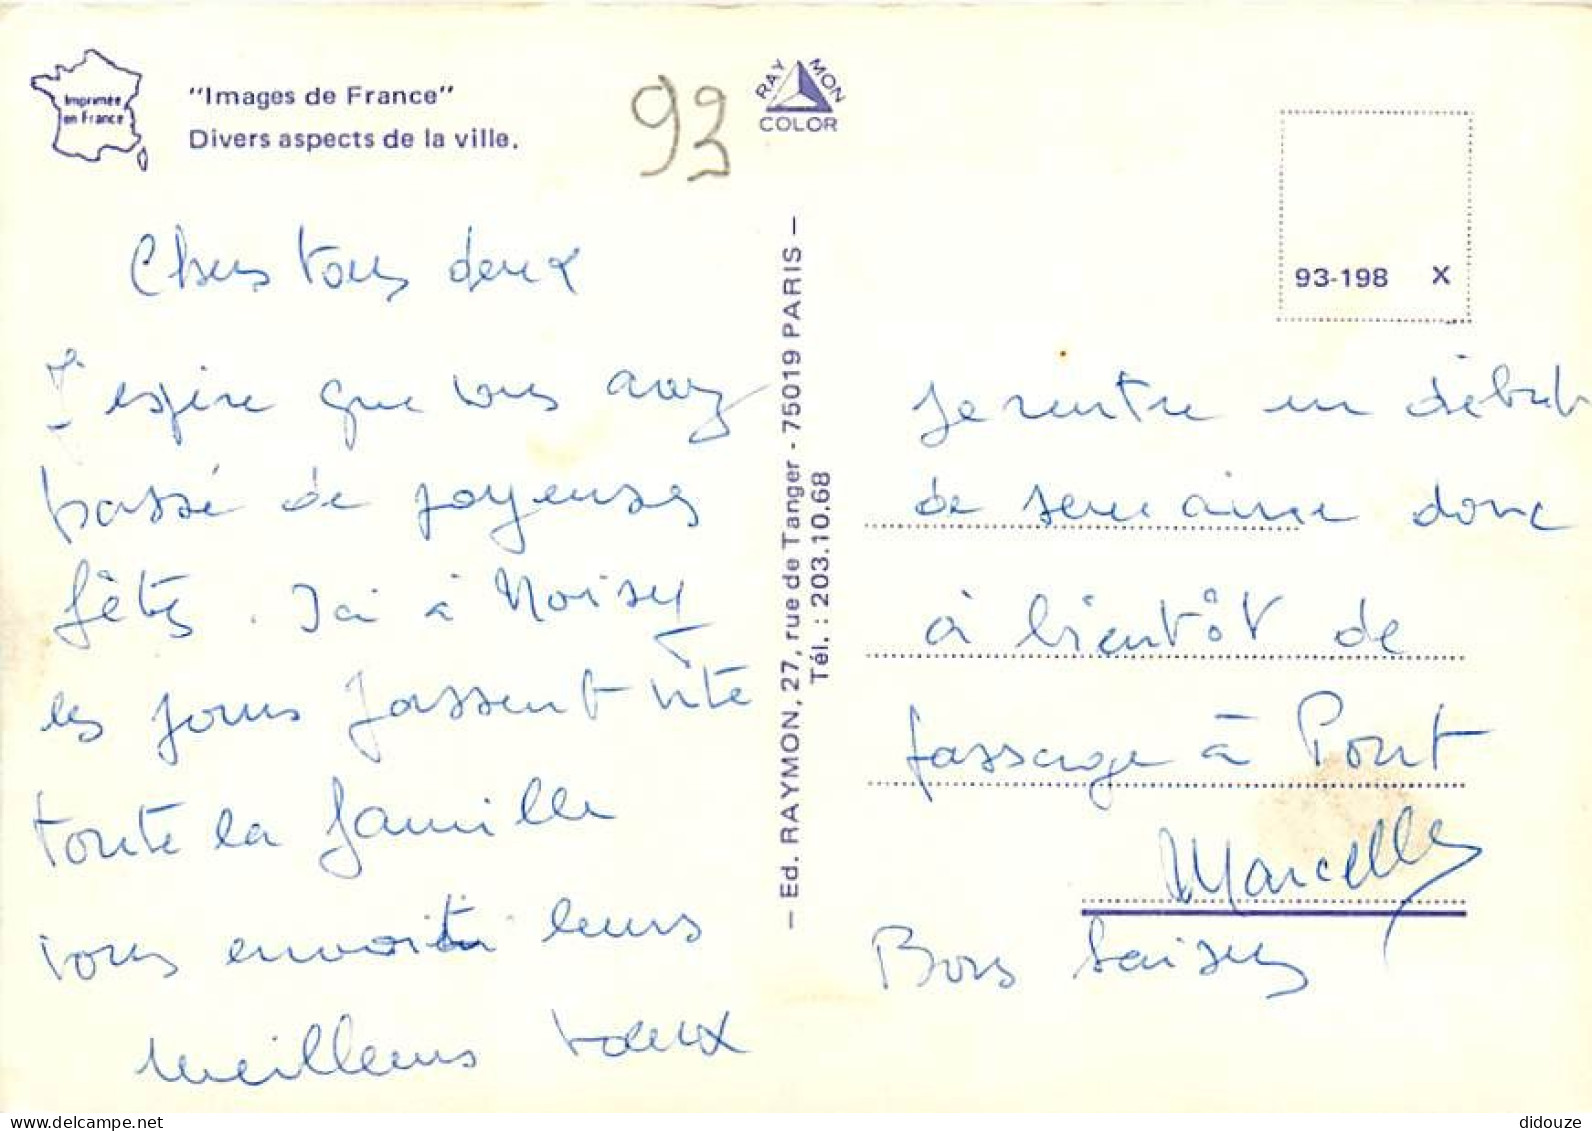 Imprimée
en France
"Images de France"
Divers aspects de la ville.
93
RAYMON
COLOR
93-198 X
Chers tous deux
J'espère que vous avez
passé de joyeuses
fêtes. Ici à Noisy
les jours passent vite
toute la famille
vous envoie leurs
meilleurs vœux
— Ed. RAYMON, 27, rue de Tanger - 75019 PARIS —
Tél. : 203.10.68
Je rentre en début
de semaine donc
à bientôt de
passage à Pont
Marcelle
Bons baisers
didouze